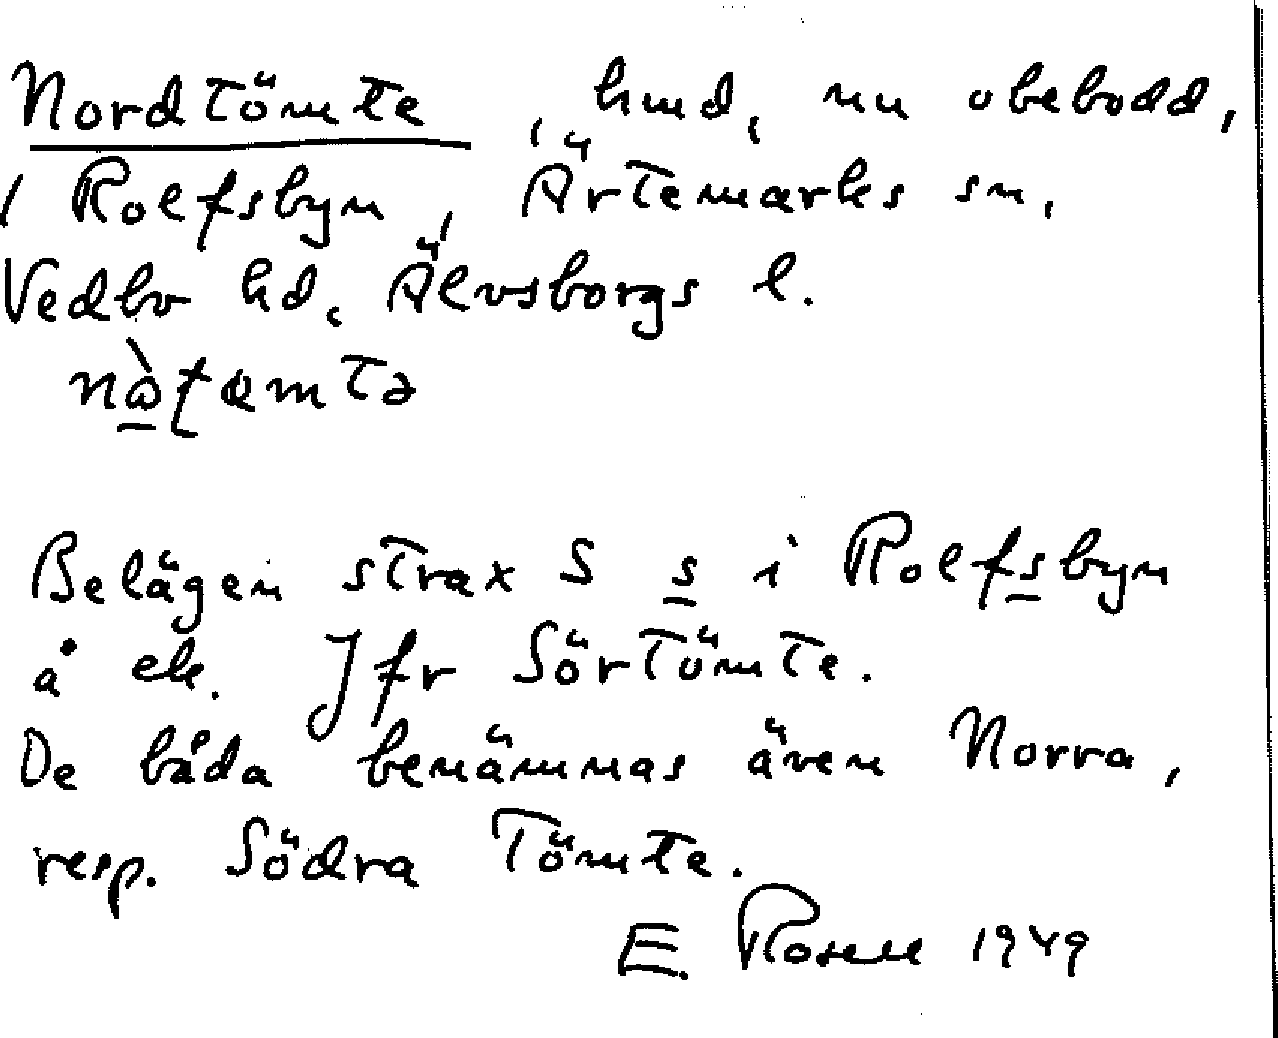 Nordtömte, hmd, nu obebodd,
i Rolfsbyn, Ärtemarks sn,
Vedbo hd, Älvsborgs l.
Belägen strax S s i Rolfsbyn
å ek. Jfr Sörtömte.
De båda benämnas även Norra,
resp. Södra Tömte.
E. Rosell 1949